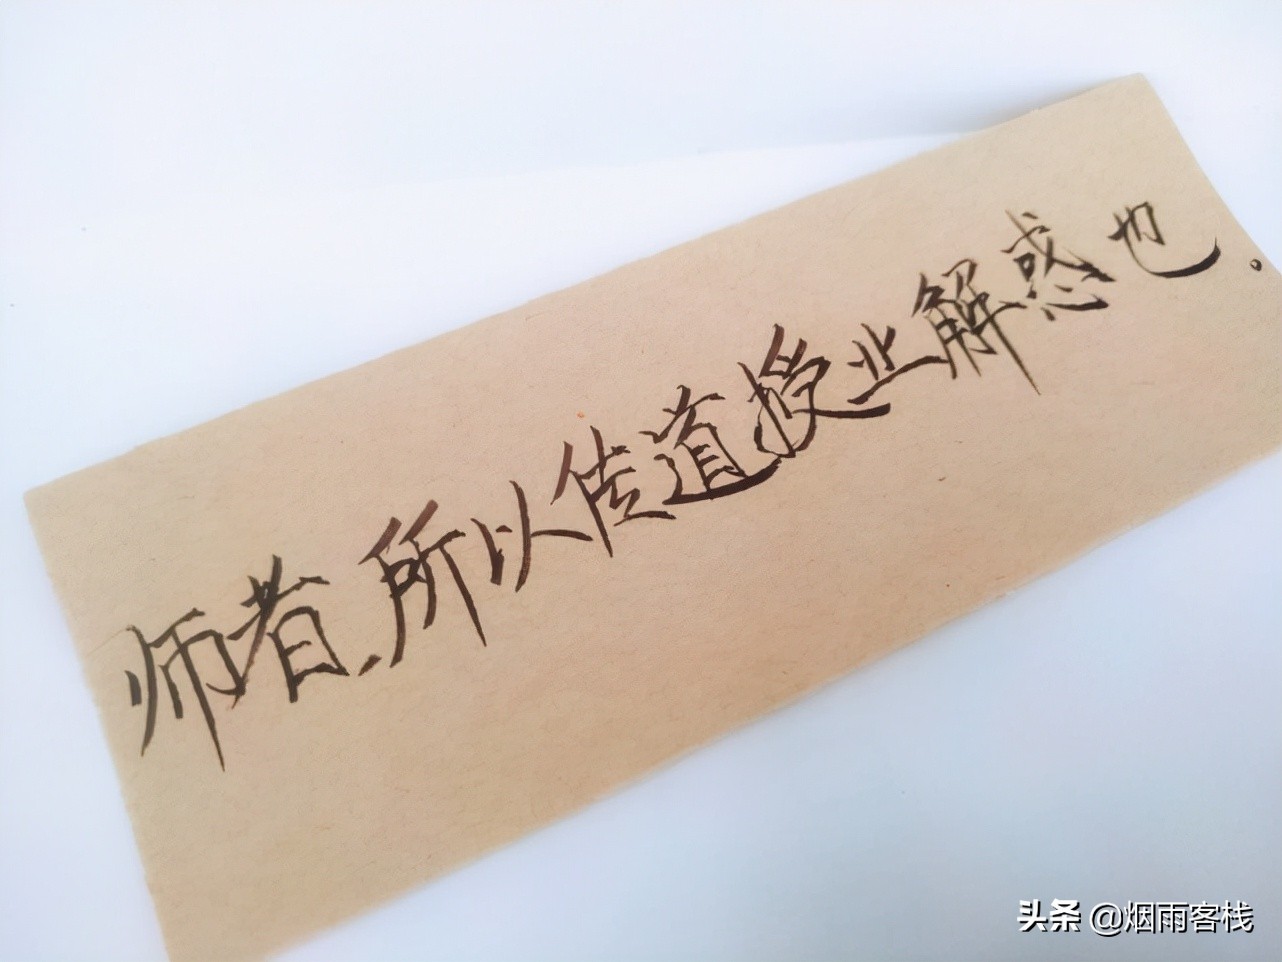 师者、所以传道授业解惑也。
头条 @烟雨客栈